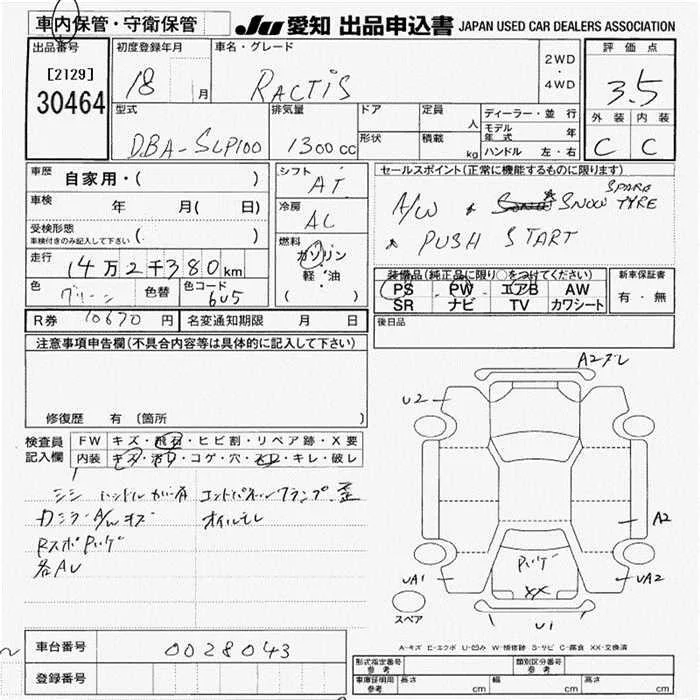 車内保管・守衛保管
JU 愛知 出品申込書 JAPAN USED CAR DEALERS ASSOCIATION
出品番号
[2129]
30464
初度登録年月
18 月
車名・グレード
RACTIS
2WD
・
4WD
評価点
3.5
外装 内装
C C
型式
DBA-SCP100
排気量
1300 cc
ドア
形状
定員
人
積載
kg
ディーラー・並行
モデル年式 年
ハンドル 左・右
車歴
自家用・( )
車検 年 月( 日)
受検形態
車検付きのみ記入して下さい ( )
走行
14万2千380km
色
グリーン
色替
色コード
6U5
シフト
AT
冷房
AC
燃料
ガソリン
軽・油
( )
セールスポイント(正常に機能するものに限ります)
A/W * SNOW SPARE TYRE
* PUSH START
装備品(純正品に限り○をつけてください)
PS PW エアB AW
SR ナビ TV カワシート
新車保証書
有・無
R券 10670 円
名変通知期限 月 日
後日品
注意事項申告欄(不具合内容等は具体的に記入して下さい)
修復歴 有〔箇所 〕
検査員
記入欄
FW キズ・飛石・ヒビ割・リペア跡・X要
内装 キズ・汚れ・コゲ・穴・スレ・キレ・破レ
シミ ハンドル
A/Wキズ オイルモレ
各AU
A2
U2
A2
UA1
UA2
XX
U1
スペア
A-キズ E-エクボ U-凹み W-補修跡 S-サビ C-腐食 XX-交換済
車台番号 0028043
登録番号
形式指定番号
参考
類別区分番号
参考
車庫証明用
参考
長さ cm 幅 cm 高さ cm